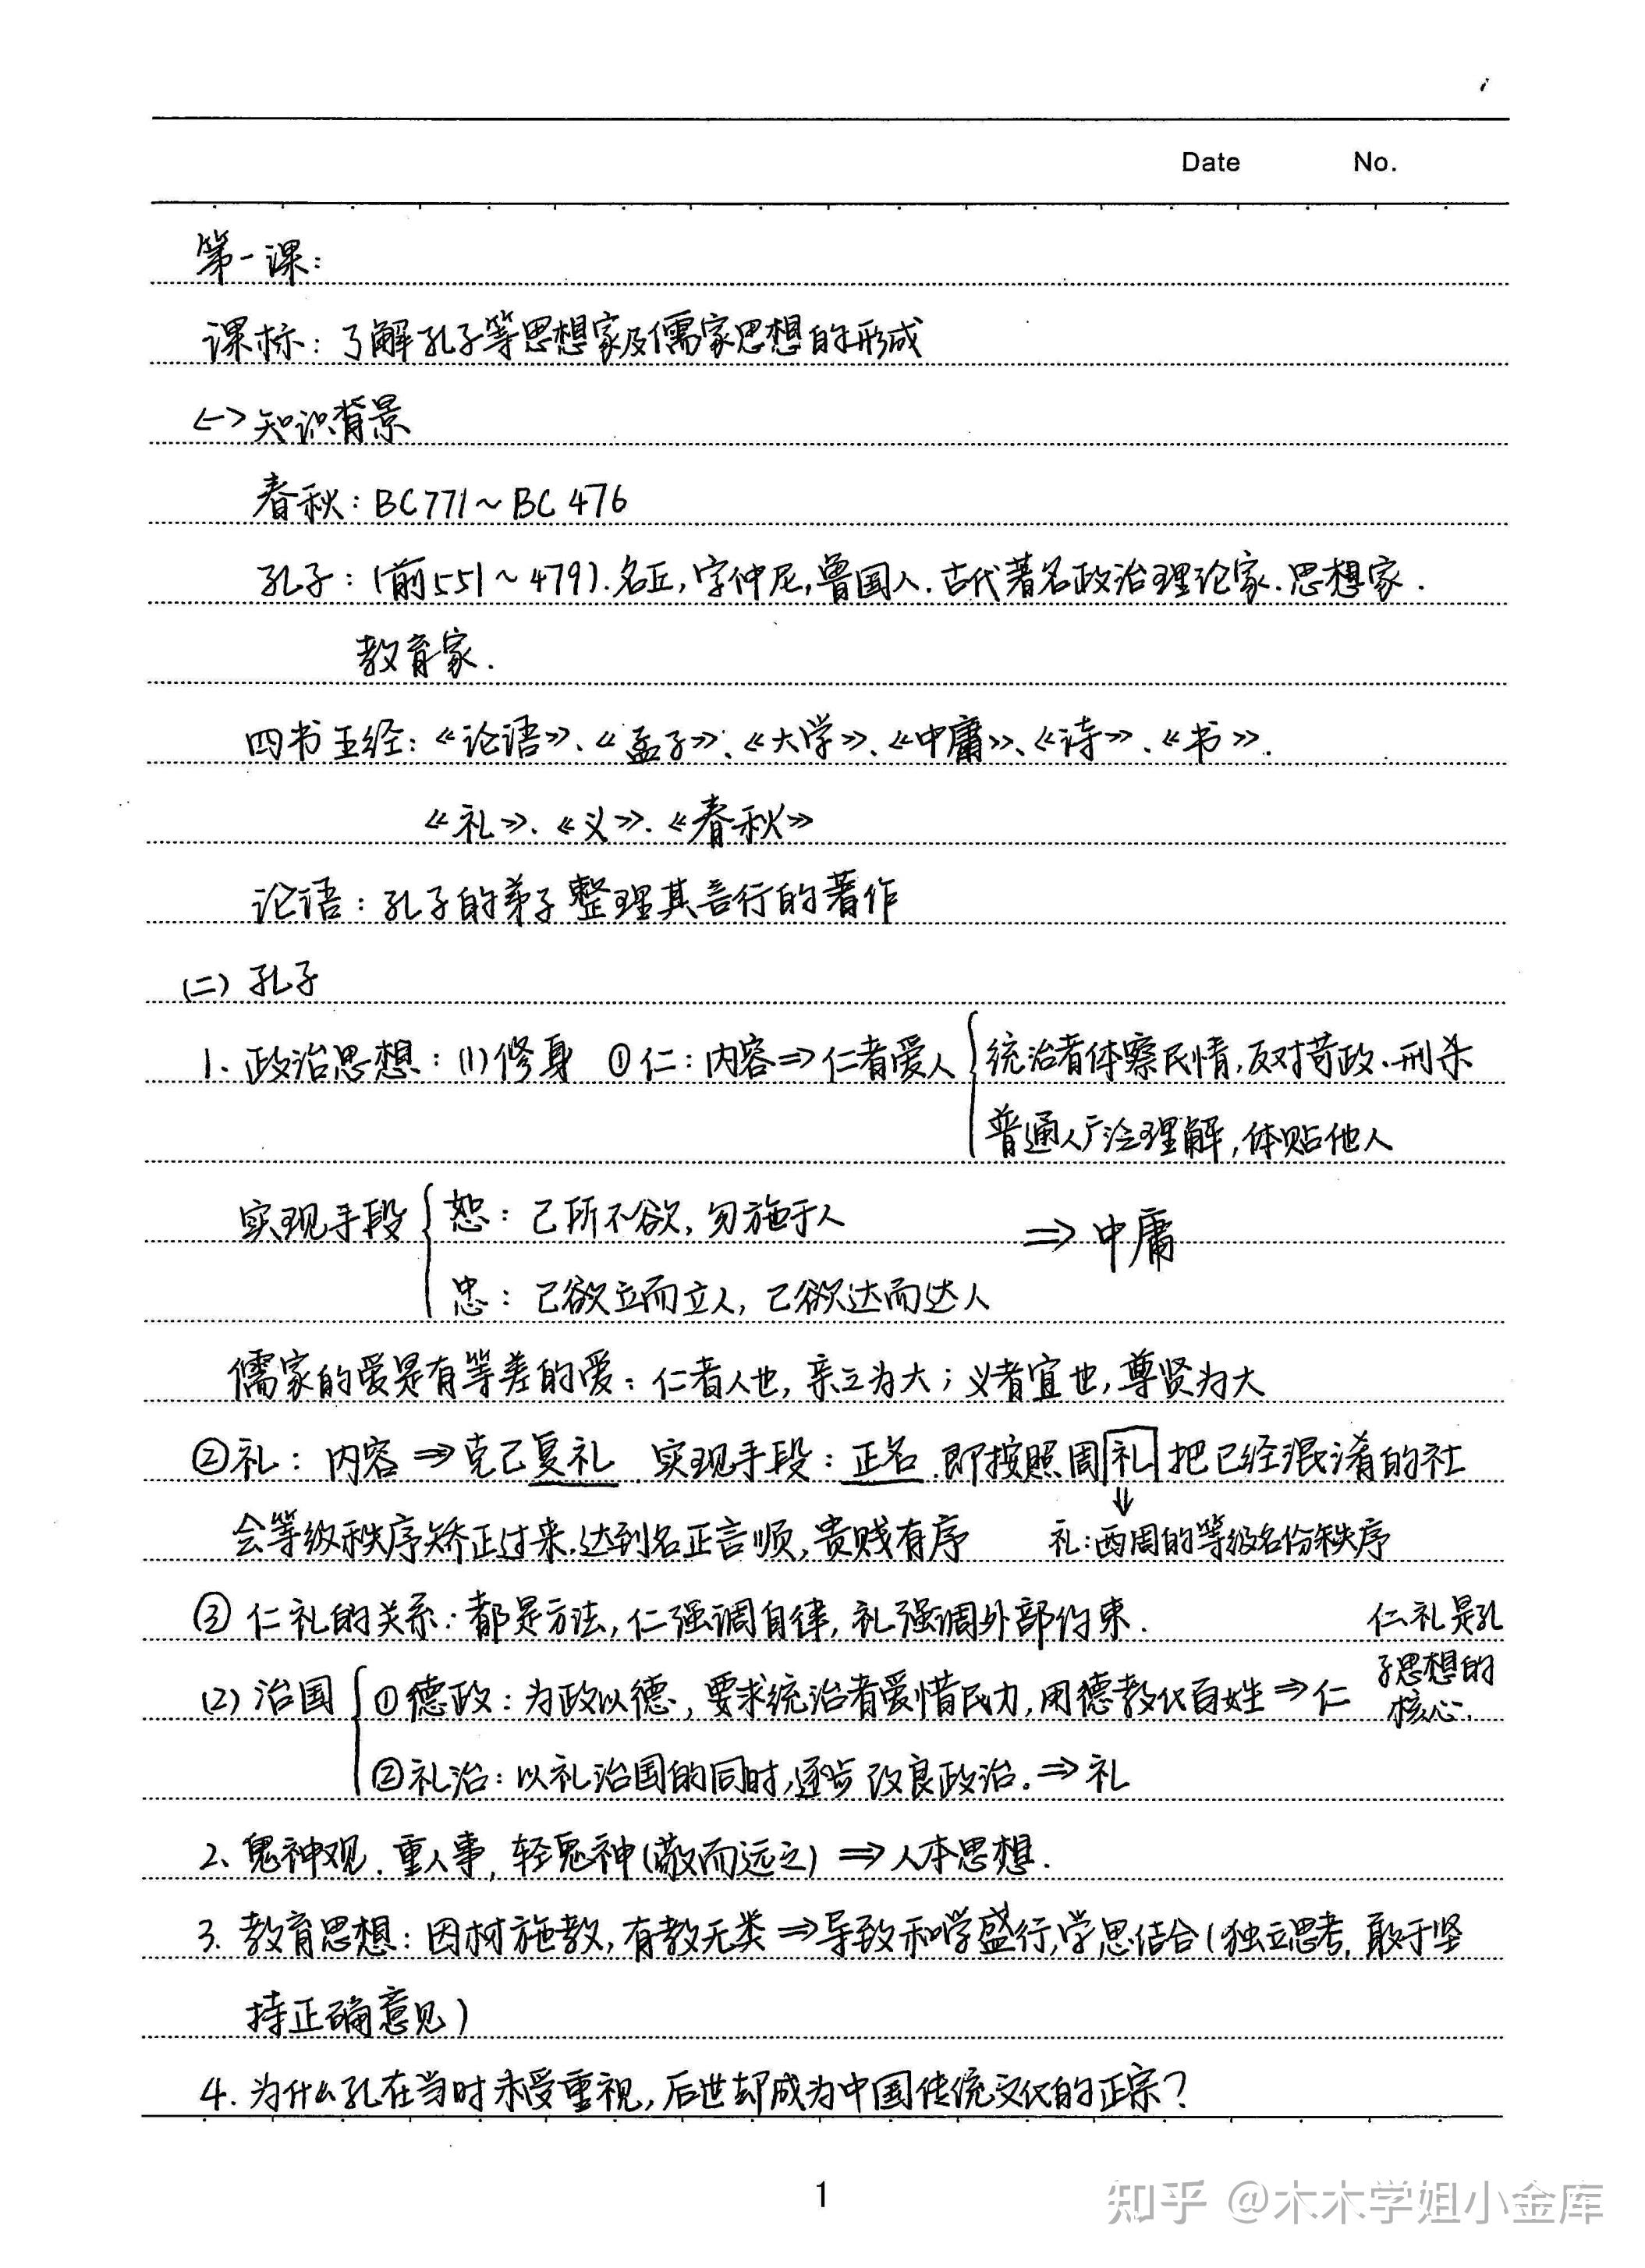 Date No.
第一课：
课标：了解孔子等思想家及儒家思想的形成
<一>知识背景
春秋：BC771～BC 476
孔子：(前551～479).名丘,字仲尼,鲁国人.古代著名政治理论家.思想家.
教育家.
四书五经：《论语》、《孟子》、《大学》、《中庸》、《诗》、《书》.
《礼》、《义》、《春秋》
论语：孔子的弟子整理其言行的著作
(二) 孔子
1. 政治思想：(1)修身 ①仁：内容⇒仁者爱人 { 统治者体察民情,反对苛政、刑杀
普通人广泛理解,体贴他人
实现手段 { 恕：己所不欲,勿施于人
⇒ 中庸
忠：己欲立而立人, 己欲达而达人
儒家的爱是有等差的爱：仁者人也, 亲之为大；义者宜也,尊贤为大
②礼：内容⇒克己复礼 实现手段：正名.即按照周礼把已经混淆的社
⇓
会等级秩序矫正过来.达到名正言顺,贵贱有序 礼:西周的等级名份秩序
③ 仁礼的关系：都是方法,仁强调自律,礼强调外部约束. 仁礼是孔
子思想的
核心.
(2) 治国 { ①德政：为政以德, 要求统治者爱惜民力,用德教化百姓⇒仁
②礼治：以礼治国的同时,逐步改良政治.⇒礼
2、鬼神观.重人事,轻鬼神(敬而远之) ⇒人本思想.
3. 教育思想：因材施教,有教无类⇒导致私学盛行,学思结合(独立思考, 敢于坚
持正确意见)
4. 为什么孔在当时未受重视,后世却成为中国传统文化的正宗?
1
知乎 @木木学姐小金库